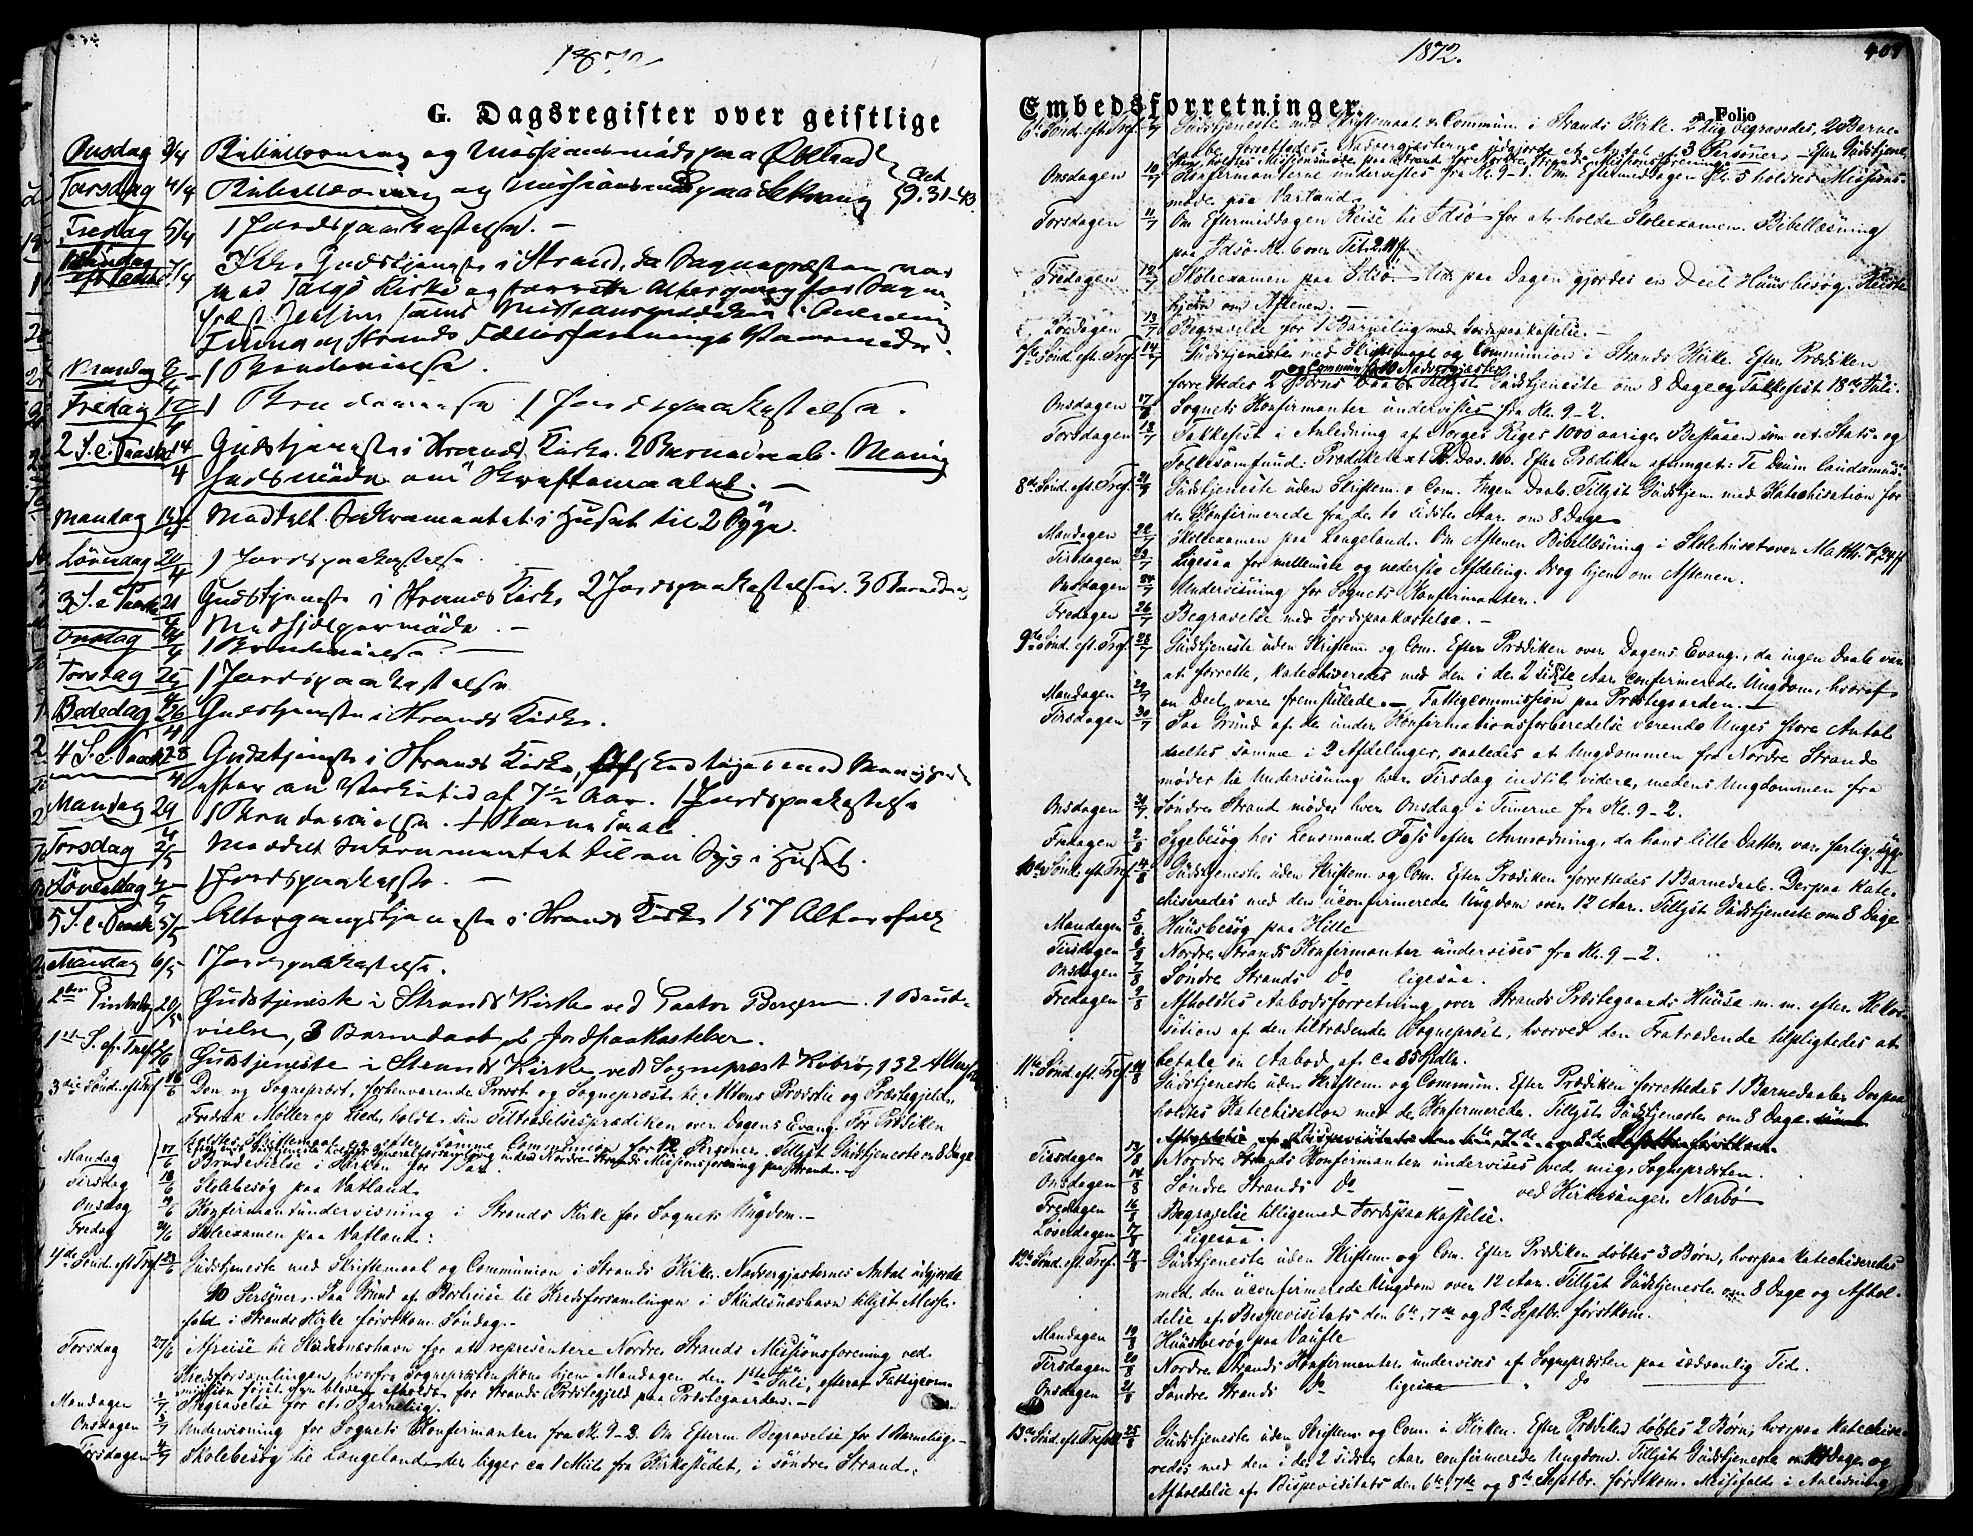 1872
G. Dagsregister over geistlige
Onsdag 3/4 Bibellæsning og Missionsmøde paa
Torsdag 4/4 Bibellæsning og Missionsmøde paa
Fredag 5/4 1 Jordspaakastelse. –
7/4 Ikke Gudstjeneste i Strand, da Sognepræsten var
Mandag 8/4 1 Brudevielse.
Fredag 12/4 1 Brudevielse 1 Jordspaakastelse.
2 S. e. Paaske 14/4 Gudstjeneste i Strands Kirke. 2 Barnedaab. Menig
hedsmøde om Skriftemaalet. –
Mandag 15/4 Meddelt Sakramentet i Huset til 2 Syge.
Løverdag 20/4 1 Jordspaakastelse.
3 S. e. Paaske 21/4 Gudstjeneste i Strands Kirke 2 Jordspaakastelser. 3 Barnedaab
Medhjelpermøde. –
Onsdag 24/4 1 Brudevielse. –
Torsdag 25/4 1 Jordspaakastelse
Bededag 26/4 Gudstjeneste i Strands Kirke.
4 S. e. Paaske 28/4 Gudstjeneste i Strands Kirke, Afskedtagen med Menigheden
efter en Virketid af 7½ Aar. 1 Jordspaakastelse
Mandag 29/4 1 Brudevielse. 1 Barnedaab
Torsdag 2/5 Meddelt Sakramentet til en Syg i Huset.
Løverdag 4/5 1 Jordspaakastelse. –
5 S. e. Paaske 5/5 Altergangstjeneste i Strands Kirke 157 Altersfolk
Mandag 6/5 1 Jordspaakastelse.
2den Pintsedag 20/5 Gudstjeneste i Strands Kirke ved Pastor Bergesen. 1 Brude-
vielse, 3 Barnedaab, 2 Jordpaakastelser.
1ste S. ef. Tref. 2/6 Gudstjeneste i Strands Kirke ved Sognepræst Kobrø, 132 Altersfolk
3die Sønd. eft. Tref. 16/6 Den ny Sognepræst, forhenværende Provst og Sognepræst til Altens Provstie og Præstegjeld,
Fredrik Møller og Lied, holdt sin Tiltrædelsesprædiken over Dagens Evang. Før Prædiken
holdtes Skriftemaal og efter samme Communion for 12 Personer. Tillyst Gudstjeneste om 8 Dage
Efter endt Gudstjeneste holdtes Generalforsamling inden Nordre Strands Missionsforening paa Strand. –
Mandag 17/6 Brudevielse i Kirken for 1 Par.
Tirsdag 18/6 Skolebesøg paa Vatland.
Onsdag 19/6 Konfirmantundervisning i Strands Kirke for Sognets Ungdom. –
Fredag 21/6 Skoleexamen paa Vatland:
4de Sønd. eft. Tref. 23/6 Gudstjeneste med Skriftemaal og Communion i Strands Kirke. Nadvergjæsternes Antal udgjorde
40 Personer. Paa Grund af Bortreise til Kredsforsamlingen i Skudesnæshavn tillyst Messe-
fald i Strands Kirke førstkom. Søndag. –
Torsdag 27/6 Afreise til Skudesnæshavn for at representere Nordre Strands Missionsforening ved
Kredsforsamlingen, hvorfra Sognepræsten kom hjem Mandagen den 1ste Juli, efterat Fattigcom-
mission forinden blev afholdt for Strands Præstegjeld paa Præstegaarden. –
Mandagen 1/7 Begravelse for et Barnelig.
Onsdagen 3/7 Undervisning for Sognets Konfirmanter fra Kl. 9–3. Om Efterm. Begravelse for 1 Barnelig. –
Torsdagen 4/7 Skolebesøg til Langeland, der ligger ca 1 Miil fra Kirkestedet, i søndre Strand.
1872.
409
Embedsforretninger.
Folio
6te Sønd. eft. Tref. 7/7 Gudstjeneste med Skriftemaal & Commun. i Strands Kirke. 2 Liig begravedes, 2 Barne-
daabe forrettedes. Nadvergjæsterne udgjorde et Antal af 3 Personer. – Efter Gudstjene-
sten holdtes Missionsmøde paa Strand for Nordre Strands Missionsforening.
Onsdagen 10/7 Konfirmanterne undervistes fra Kl. 9–1. Om Eftermiddagen Kl. 5 holdtes Missions-
møde paa Vatland.
Torsdagen 11/7 Om Eftermiddagen Reise til Idsø for at holde Skoleexamen. Bibellæsning
paa Idsø Kl. 6 over Tit. 2.11 ff.
Fredagen 12/7 Skoleexamen paa Idsø. Ud paa Dagen gjordes en Deel Huusbesøg. Reiste
hjem om Aftenen. –
Løverdagen 13/7 Begravelse for 1 Barnelig med Jordspaakastelse. –
7de Sønd. eft. Tref. 14/7 Gudstjeneste med Skriftemaal og Communion i Strands Kirke. Efter Prædiken
forrettedes 2 Børns Daab. Tillyst Gudstjeneste om 8 Dage og Takkefest 18de Juli.
Onsdagen 17/7 Sognets Konfirmanter undervistes fra Kl. 9–2.
Torsdagen 18/7 Takkefest i Anledning af Norges Riges 1000 aarige Bestaaen som eet Stats- og
Folkesamfund. Prædiketext Ps. Dav. 100. Efter Prædiken afsunget: Te Deum laudamus.
8de Sønd. eft. Tref. 21/7 Gudstjeneste uden Skriftem. & Com. Ingen Daab. Tillyst Gudstjen. med Katechisation for
de Konfirmerede fra de to sidste Aar om 8 Dage
Mandagen 22/7 Skoleexamen paa Langeland. Om Aftenen Bibellæsning i Skolehuset over Matth. 7,24 ff
Tirsdagen 23/7 Ligesaa for mellemste og nederste Afdeling. Drog hjem om Aftenen.
Onsdagen 24/7 Undervisning for Sognets Konfirmanter.
Fredagen 26/7 Begravelse med Jordspaakastelse. –
9de Sønd. eft. Tref. 28/7 Gudstjeneste uden Skriftem. og Com. Efter Prædiken over Dagens Evang., da ingen Daab var
at forrette, katechiseredes med den i de 2 sidste Aar confirmerede Ungdom, hvoraf
Mandagen 29/7 en Deel vare fremstillede. – Fattigcommission paa Præstegaarden. –
Tirsdagen 30/7 Paa Grund af de under Konfirmationsforberedelse værende Unges store Antal
deeltes samme i 2 Afdelinger, saaledes at Ungdommen fra Nordre Strand
møder til Undervisning hver Tirsdag indtil videre, medens Ungdommen fra
Onsdagen 31/7 Søndre Strand møder hver Onsdag i Timerne fra Kl. 9–2.
Fredagen 2/8 Sygebesøg hos Lensmand Fojs efter Anmodning, da hans lille Datter var farlig syg.
10de Sønd. eft. Tref. 4/8 Gudstjeneste uden Skriftem. og Com. Efter Prædiken forrettedes 1 Barnedaab. Derpaa kate-
chiseredes med den uconfirmerede Ungdom over 12 Aar. Tillyst Gudstjeneste om 8 Dage
Mandagen 5/8 Huusbesøg paa Hille
Tirsdagen 6/8 Nordre Strands Konfirmanter undervises fra Kl. 9–2.
Onsdagen 7/8 Søndre Strands Do ligesaa.
Fredagen 9/8 Afholdtes Aabodsforretning over Strands Præstegaards Huuse m. m. efter Rekvi-
sition af den tiltrædende Sognepræst, hvorved den Fratrædende tilpligtedes at
betale en Aabod af ca 85 Spdlr.
11te Sønd. eft. Tref. 11/8 Gudstjeneste uden Skriftem. og Commun. Efter Prædiken forrettedes 1 Barnedaab. Derpaa
holdtes Katechisation med de Konfirmerede. Tillyst Gudstjeneste om 8 Dage
Tirsdagen 13/8 Nordre Strands Konfirmanter undervises ved mig, Sognepræsten.
Onsdagen 14/8 Søndre Strands Do – ved Kirkesanger Narbø
Fredagen 16/8 Begravelse tilligemed Jordspaakastelse.
Løverdagen 17/8 Ligesaa.
12te Sønd. eft. Tref. 18/8 Gudstjeneste uden Skriftem. og Com. Efter Prædiken døbtes 3 Børn, hvorpaa katechiseredes
med den uconfirmerede Ungdom over 12 Aar. Tillyst Gudstjeneste om 8 Dage og Afhol-
delse af Bispevisitats den 6te, 7de og 8de Septbr. førstkom.
Mandagen 19/8 Huusbesøg paa
Tirsdagen 20/8 Nordre Strands Konfirmanter undervises af Sognepræsten paa sædvanlig Tid.
Onsdagen 21/8 Søndre Strands Do ligesaa Do
13de Sønd. eft. Tref. 25/8 Gudstjeneste uden Skriftem. og Com. i Kirken. Efter Prædiken døbtes 2 Børn, hvorpaa katechise-
redes med den i de 2 sidste Aar confirmerede Ungdom. Tillyst Gudstjeneste om 14 Dage og
Afholdelse af Bispevisitats den 6te, 7de og 8de Septbr. førstkom. Messefald i Anledning